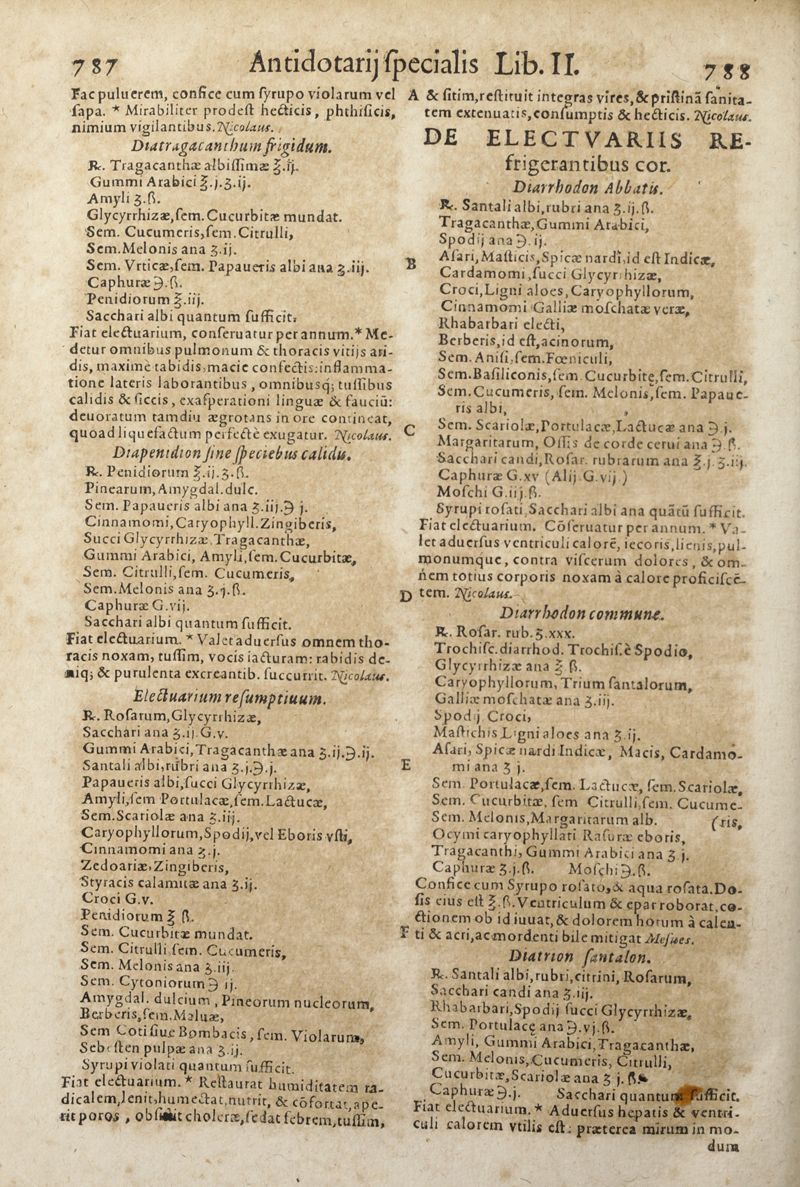 787 Antidotarij ſpecialis Lib. II. 788
Fac puluerem, confice cum ſyrupo violarum vel
ſapa. * Mirabiliter prodeſt hecticis, phthiſicis,
nimium vigilantibus. Nicolaus.
Diatragacanthum frigidum.
℞. Tragacanthæ albiſſimæ ℥.ij.
Gummi Arabici ℥.j.ʒ.ij.
Amyli ʒ.ß.
Glycyrrhizæ, ſem. Cucurbitæ mundat.
Sem. Cucumeris, ſem. Citrulli,
Sem. Melonis ana ʒ.ij.
Sem. Vrticæ, ſem. Papaueris albi ana ʒ.iij.
Caphuræ ℈.ß.
Penidiorum ℥.iij.
Sacchari albi quantum ſufficit.
Fiat electuarium, conſeruatur per annum. * Me-
detur omnibus pulmonum & thoracis vitijs ari-
dis, maximè tabidis, macie confectis: inflamma-
tione lateris laborantibus, omnibusq; tuſſibus
calidis & ſiccis, exaſperationi linguæ & fauciũ:
deuoratum tamdiu ægrotans in ore contineat,
quoad liquefactum perfectè exugatur. Nicolaus.
Diapenidion ſine ſpeciebus calidu.
℞. Penidiorum ℥.ij.ʒ.ß.
Pinearum, Amygdal. dulc.
Sem. Papaueris albi ana ʒ.iij.℈ j.
Cinnamomi, Caryophyll. Zingiberis,
Succi Glycyrrhizæ, Tragacanthæ,
Gummi Arabici, Amyli, ſem. Cucurbitæ,
Sem. Citrulli, ſem. Cucumeris,
Sem. Melonis ana ʒ.j.ß.
Caphuræ G.vij.
Sacchari albi quantum ſufficit.
Fiat electuarium. * Valet aduerſus omnem tho-
racis noxam, tuſſim, vocis iacturam: rabidis de-
niq; & purulenta excreantib. ſuccurrit. Nicolaus.
Electuarium reſumptiuum.
℞. Roſarum, Glycyrrhizæ,
Sacchari ana ʒ.ij. G.v.
Gummi Arabici, Tragacanthæ ana ʒ.ij.℈.ij.
Santali albi, rubri ana ʒ.j.℈.j.
Papaueris albi, ſucci Glycyrrhizæ,
Amyli, ſem Portulacæ, ſem. Lactucæ,
Sem. Scariolæ ana ʒ.iij.
Caryophyllorum, Spodij, vel Eboris vſti,
Cinnamomi ana ʒ.j.
Zedoariæ, Zingiberis,
Styracis calamitæ ana ʒ.ij.
Croci G.v.
Penidiorum ℥ ß.
Sem. Cucurbitæ mundat.
Sem. Citrulli, ſem. Cucumeris,
Sem. Melonis ana ʒ.iij.
Sem. Cytoniorum ℈ ij.
Amygdal. dulcium, Pineorum nucleorum,
Berberis, ſem. Maluæ,
Sem Cotiſiue Bombacis, ſem. Violarum,
Sebeſten pulpæ ana ʒ.ij.
Syrupi violati quantum ſufficit.
Fiat electuarium. * Reſtaurat humiditatem ra-
dicalem, lenit, humectat, nutrit, & cõfortat, ape-
rit poros, obſiſtit choleræ, ſedat febrem, tuſſim,
A & ſitim, reſtituit integras vires, & priſtinã ſanita-
tem extenuatis, conſumptis & hecticis. Nicolaus.
DE ELECTVARIIS RE-
frigerantibus cor.
Diarrhodon Abbatis.
℞. Santali albi, rubri ana ʒ.ij.ß.
Tragacanthæ, Gummi Arabici,
Spodij ana ℈.ij.
B Aſari, Maſticis, Spicæ nardi, id eſt Indicæ,
Cardamomi, ſucci Glycyrrhizæ,
Croci, Ligni aloes, Caryophyllorum,
Cinnamomi Galliæ moſchatæ veræ,
Rhabarbari electi,
Berberis, id eſt, acinorum,
Sem. Aniſi, ſem. Fœniculi,
Sem. Baſiliconis, ſem. Cucurbitę, ſem. Citrulli,
Sem. Cucumeris, ſem. Melonis, ſem. Papaue-
ris albi,
C Sem. Scariolæ, Portulacæ, Lactucæ ana ℈ j.
Margaritarum, Oſſis de corde cerui ana ℈ ß.
Sacchari candi, Roſar. rubrarum ana ℥.j.ʒ.iij.
Caphuræ G.xv (Alij G.vij)
Moſchi G.iij.ß.
Syrupi roſati, Sacchari albi ana quãtũ ſufficit.
Fiat electuarium. Cõſeruatur per annum. * Va-
let aduerſus ventriculi calorẽ, iecoris, lienis, pul-
monumque, contra viſcerum dolores, & om-
nem totius corporis noxam à calore proficiſcẽ-
D tem. Nicolaus.
Diarrhodon commune.
℞. Roſar. rub. ʒ.xxx.
Trochiſc. diarrhod. Trochiſ. è Spodio,
Glycyrrhizæ ana ℥ ß.
Caryophyllorum, Trium ſantalorum,
Galliæ moſchatæ ana ʒ.iij.
Spodij Croci,
Maſtichis Ligni aloes ana ʒ ij.
Aſari, Spicæ nardi Indicæ, Macis, Cardamo-
E mi ana ʒ j.
Sem. Portulacæ, ſem. Lactucæ, ſem. Scariolæ,
Sem. Cucurbitæ, ſem Citrulli, ſem. Cucume-
Sem. Melonis, Margaritarum alb. (ris,
Ocymi caryophyllati Raſuræ eboris,
Tragacanthi, Gummi Arabici ana ʒ j.
Caphuræ ʒ.j.ß. Moſchi ℈.ß.
Confice cum Syrupo roſato, & aqua roſata. Do-
ſis eius eſt ℥.ß. Ventriculum & epar roborat, co-
ctionem ob id iuuat, & dolorem horum à calen-
F ti & acri, ac mordenti bile mitigat Meſues.
Diatrion ſantalon.
℞. Santali albi, rubri, citrini, Roſarum,
Sacchari candi ana ʒ.iij.
Rhabarbari, Spodij ſucci Glycyrrhizæ,
Sem. Portulacę ana ℈.vj.ß.
Amyli, Gummi Arabici, Tragacanthæ,
Sem. Melonis, Cucumeris, Citrulli,
Cucurbitæ, Scariolæ ana ʒ j.ß.
Caphuræ ℈.j. Sacchari quantum ſufficit.
Fiat electuarium. * Aduerſus hepatis & ventri-
culi calorem vtilis eſt: præterea mirum in mo-
dum